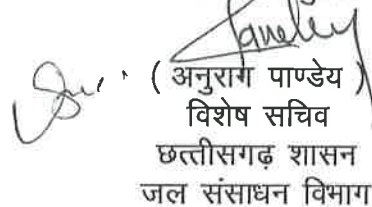 ( अनुराग पाण्डेय )
विशेष सचिव
छत्तीसगढ़ शासन
जल संसाधन विभाग